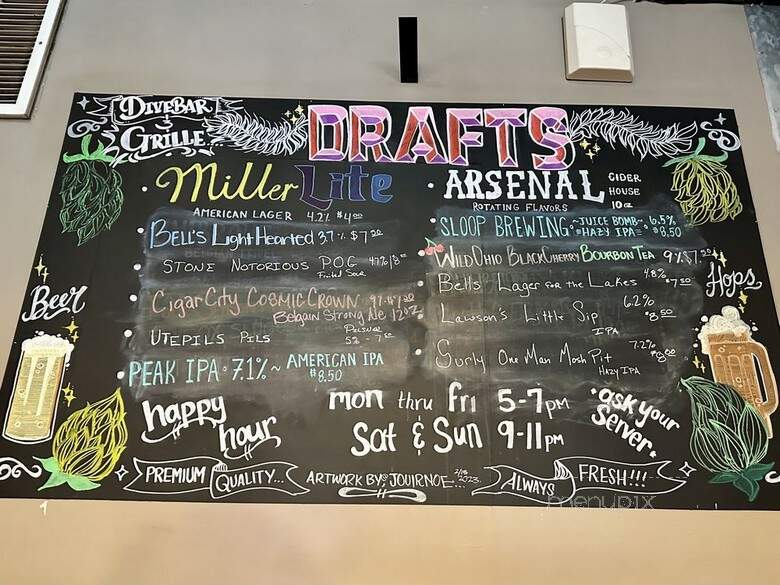 DIVEBAR
& GRILLE...
DRAFTS
Miller Lite
AMERICAN LAGER 4.2% $4.00
BELL'S LIGHT HEARTED 3.7% $7.00
STONE NOTORIOUS P.O.G
Fruited Sour
CIGAR CITY COSMIC CROWN
Belgain Strong Ale 12oz
UTEPILS PILS
PILSNER
PEAK IPA 7.1% ~ AMERICAN IPA
$8.50
ARSENAL CIDER HOUSE
ROTATING FLAVORS 10oz
SLOOP BREWING ~JUICE BOMB~ 6.5%
HAZY IPA $8.50
WILD OHIO BLACK CHERRY BOURBON TEA
Bells Lager FOR THE Lakes 4.8% $7.50
6.2%
Lawson's Little Sip 8.50
IPA
7.2%
Surly One Man Mosh Pit
HAZY IPA
Beer
Hops
happy hour
mon thru fri 5-7pm
Sat & Sun 9-11pm
*ask your Server*
PREMIUM QUALITY...
ARTWORK BY; JOUIRNOE... 2023
ALWAYS FRESH!!!
menupix